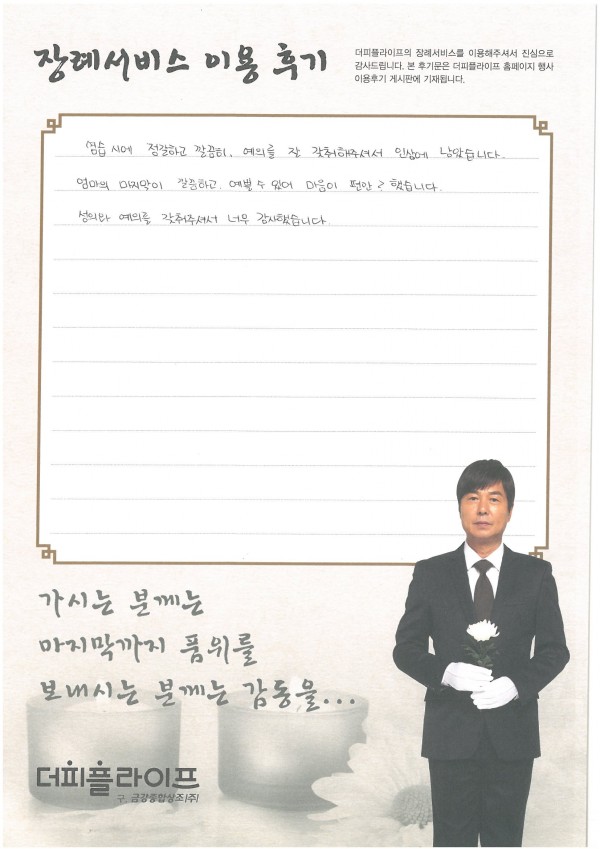 장례서비스 이용 후기
더피플라이프의 장례서비스를 이용해주셔서 진심으로
감사드립니다. 본 후기문은 더피플라이프 홈페이지 행사
이용후기 게시판에 기재됩니다.
염습 시에 정갈하고 깔끔히, 예의를 잘 갖춰해주셔서 인상에 남았습니다.
엄마의 마지막이 깔끔하고, 예쁠 수 있어 마음이 편안 했습니다.
성의와 예의를 갖춰주셔서 너무 감사했습니다.
가시는 분께는
마지막까지 품위를
보내시는 분께는 감동을...
더피플라이프
구. 금강종합상조(주)